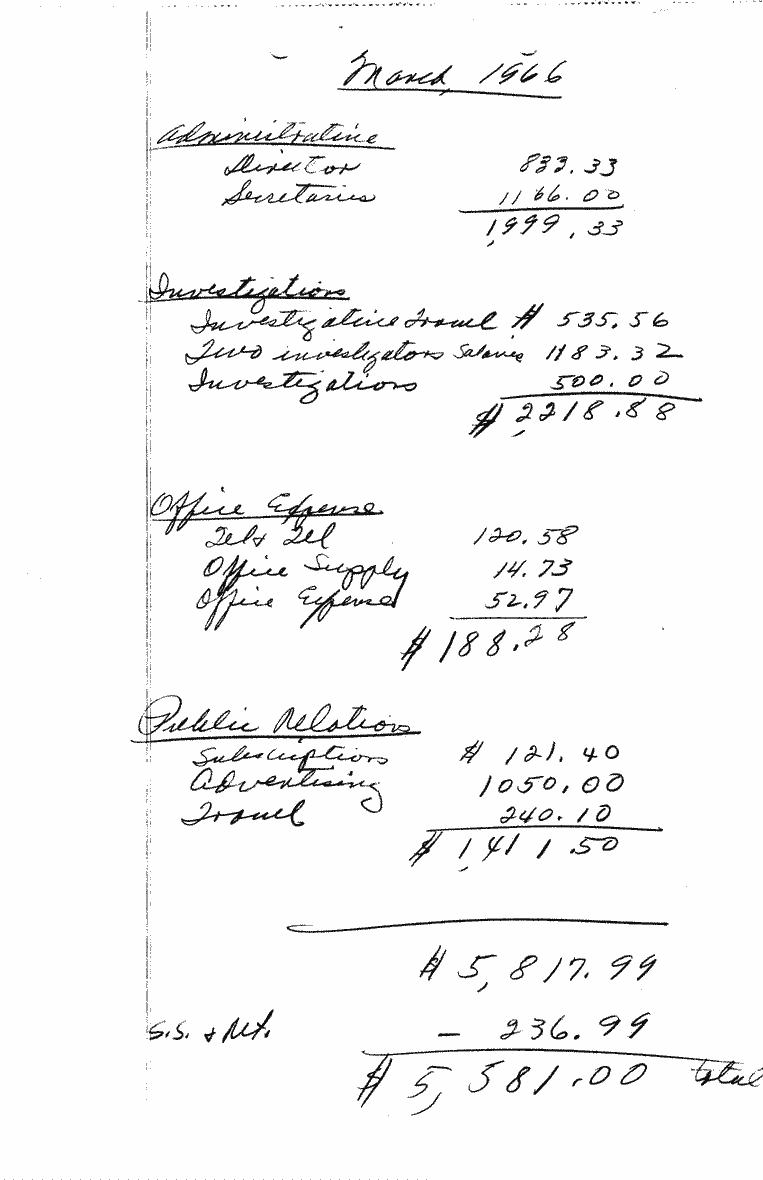 March, 1966
Administrative
Director 833.33
Secretaries 1166.00
1,999.33
Investigations
Investigative Travel $ 535.56
Two investigators Salaries 1183.32
Investigations 500.00
$ 2,218.88
Office Expense
Tel & Tel 120.58
Office Supply 14.73
Office Expense 52.97
$ 188.28
Public Relations
Subscriptions $ 121.40
Advertising 1050.00
Travel 240.10
$ 1,411.50
$ 5,817.99
S.S. & Ret. - 236.99
$ 5,581.00 total